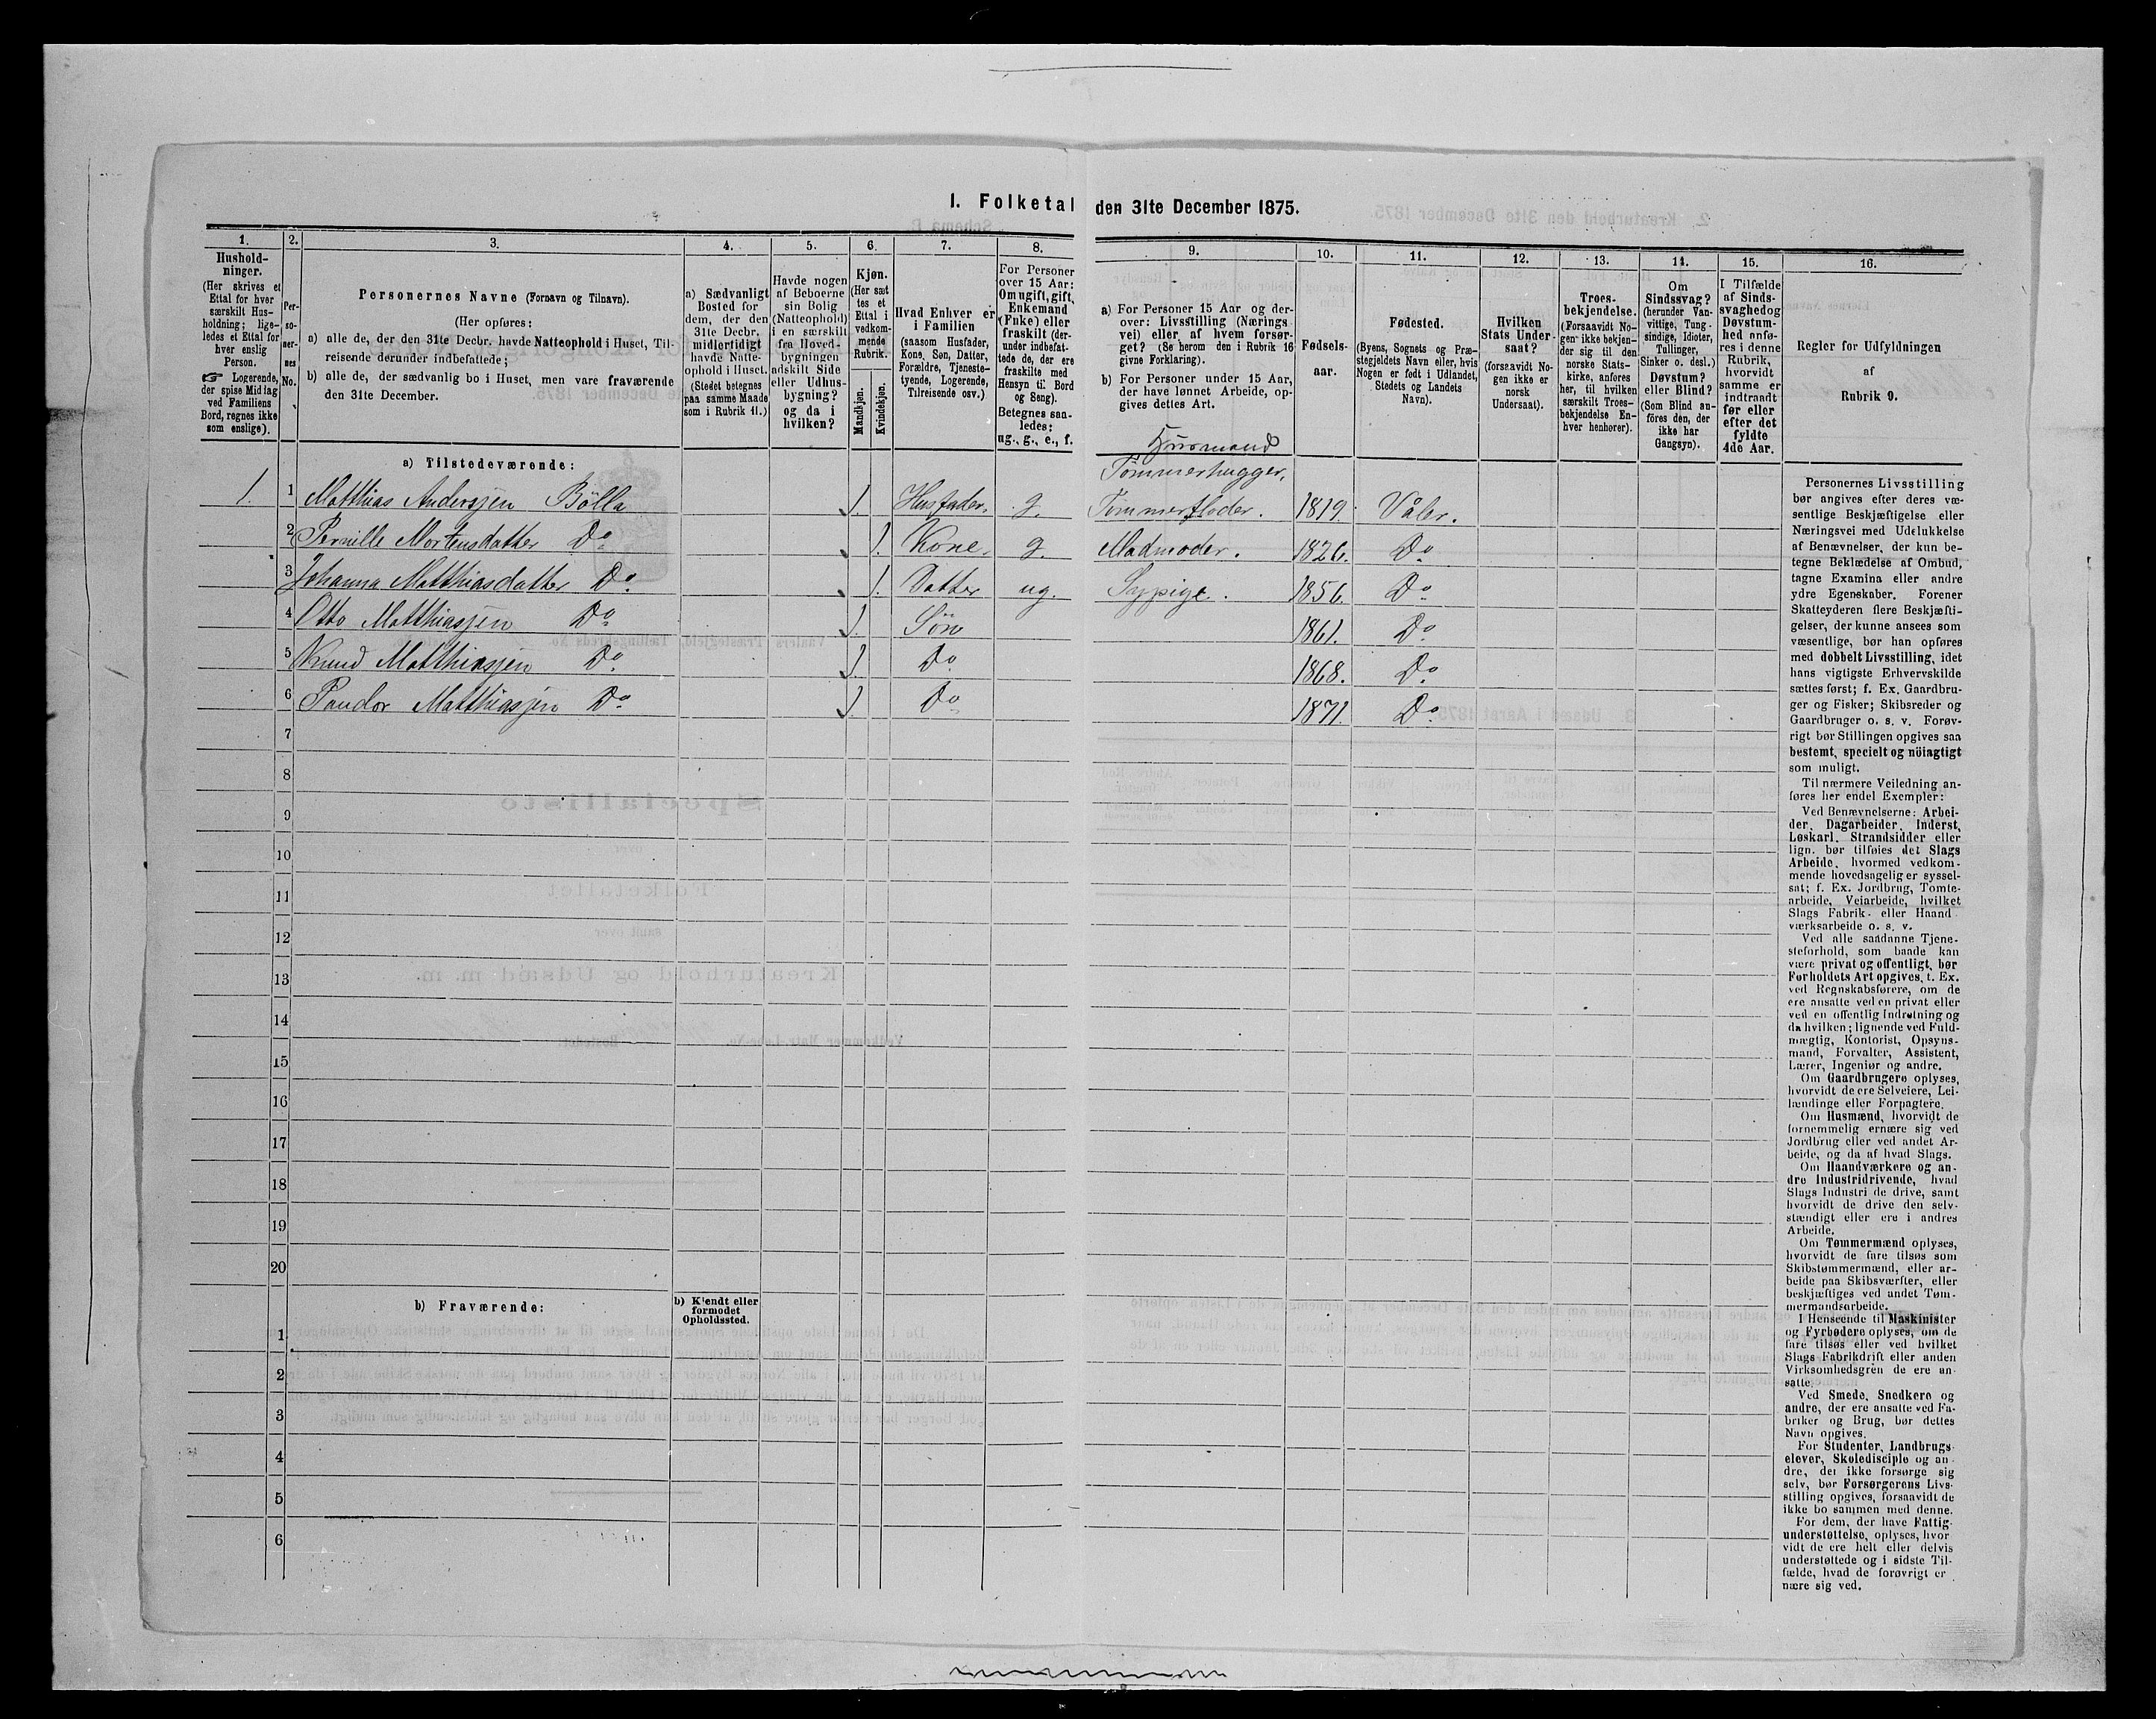 1. Folketal den 31te December 1875.
1.
2.
3.
4.
5.
6.
7.
8.
9.
10.
11.
12.
13.
14.
15.
16.
Hushold-
ninger.
(Her skrives et
Ettal for hver
særskilt Hus-
holdning; lige-
ledes et Ettal for
hver enslig
Person.
☞ Logerende,
der spise Middag
ved Familiens
Bord, regnes ikke
som enslige).
Per-
so-
ner-
nes
No.
Personernes Navne (Fornavn og Tilnavn).
(Her opføres:
a) alle de, der den 31te Decbr. havde Natteophold i Huset, Til-
reisende derunder indbefattede;
b) alle de, der sædvanlig bo i Huset, men vare fraværende
den 31te December.
a) Sædvanligt
Bosted for
dem, der den
31te Decbr.
midlertidigt
havde Natte-
ophold i Huset.
(Stedet betegnes
paa samme Maade
som i Rubrik 11.)
Havde nogen
af Beboerne
sin Bolig
(Natteophold)
i en særskilt
fra Hoved-
bygningen
adskilt Side
eller Udhus-
bygning?
og da i
hvilken?
Kjøn.
(Her sæt
tes et
Ettal i
vedkom-
mende
Rubrik.
Mandkjøn.
Kvindekjøn.
Hvad Enhver er
i Familien
(saasom Husfader,
Kone, Søn, Datter,
Forældre, Tjeneste-
tyende, Logerende,
Tilreisende osv.)
For Personer
over 15 Aar:
Om ugift, gift,
Enkemand
(Enke) eller
fraskilt (der-
under indbefat-
tede de, der ere
fraskilte med
Hensyn til Bord
og Seng).
Betegnes saa-
ledes:
ug., g., e., f.
a) For Personer 15 Aar og der-
over: Livsstilling (Nærings
vei) eller af hvem forsør-
get? (Se herom den i Rubrik 16
givne Forklaring).
b) For Personer under 15 Aar,
der have lønnet Arbeide, op-
gives dettes Art.
Fødsels-
aar.
Fødested.
(Byens, Sognets og Præ-
stegjeldets Navn eller, hvis
Nogen er født i Udlandet,
Stedets og Landets
Navn).
Hvilken
Stats Under-
saat?
(forsaavidt No-
gen ikke er
norsk
Undersaat).
Troes-
bekjendelse.
(Forsaavidt No-
gen ikke bekjen-
der sig til den
norske Stats-
kirke, anføres
her, til hvilken
særskilt Troes-
bekjendelse En-
hver henhører).
Om
Sindssvag?
(herunder Van-
vittige, Tung-
sindige, Idioter,
Tullinger,
Sinker o. desl.)
Døvstum?
eller Blind?
(Som Blind an-
føres den, der
ikke har
Gangsyn).
I Tilfælde
af Sinds-
svaghed og
Døvstum-
hed anfø-
res i denne
Rubrik,
hvorvidt
samme er
indtraadt
før eller
efter det
fyldte
4de Aar.
Regler for Udfyldningen
af
Rubrik 9.
a) Tilstedeværende:
Husmand
Tømmerhugger,
1. 1 Matthias Andersjen Bölla 1. Husfader. g. Tømmerfløder. 1819. Våler.
2 Pernille Mortensdatter Do 1. Kone. g. Madmoder. 1826. Do
3 Johanna Matthiasdatter Do. 1. Datter ug. Sypige. 1856. Do
4 Otto Matthiasjen Do 1. Sön 1861. Do
5 Knud Matthiasjen Do 1 Do 1868. Do
6 Pauder Matthiasjen Do 1 Do 1871 Do
7
8
9
10
11
12
13
14
15
16
17
18
19
20
b) Fraværende:
b) Kjendt eller
formodet
Opholdssted.
1
2
3
4
5
6
Personernes Livsstilling
bør angives efter deres væ-
sentlige Beskjæftigelse eller
Næringsvei med Udelukkelse
af Benævnelser, der kun be-
tegne Beklædelse af Ombud,
tagne Examina eller andre
ydre Egenskaber. Forener
Skatteyderen flere Beskjæfti-
gelser, der kunne ansees som
væsentlige, bør han opføres
med dobbelt Livsstilling, idet
hans vigtigste Erhvervskilde
sættes først; f. Ex. Gaardbru-
ger og Fisker; Skibsreder og
Gaardbruger o. s. v. Forøv-
rigt bør Stillingen opgives saa
bestemt, specielt og nöiagtigt
som muligt.
Til nærmere Veiledning an-
føres her endel Exempler:
Ved Benævnelserne: Arbei-
der, Dagarbeider, Inderst,
Løskarl, Strandsidder eller
lign. bør tilføies det Slags
Arbeide, hvormed vedkom-
mende hovedsagelig er syssel-
sat; f. Ex. Jordbrug, Tomte-
arbeide, Veiarbeide, hvilket
Slags Fabrik- eller Haand
værksarbeide o. s. v.
Ved alle saadanne Tjene-
steforhold, som baade kan
være privat og offentligt, bør
Forholdets Art opgives, t. Ex.
ved Regnskabsførere, om de
ere ansatte ved en privat eller
ved en offentlig Indretning og
da hvilken; lignende ved Fuld-
mægtig, Kontorist, Opsyns-
mand, Forvalter, Assistent,
Lærer, Ingeniør og andre.
Om Gaardbrugere oplyses,
hvorvidt de ere Selveiere, Lei-
lændinge eller Forpagtere.
Om Husmænd, hvorvidt de
fornemmelig ernære sig ved
Jordbrug eller ved andet Ar-
beide, og da af hvad Slags.
Om Haandværkere og an-
dre Industridrivende, hvad
Slags Industri de drive, samt
hvorvidt de drive den selv-
stændigt eller ere i andres
Arbeide.
Om Tømmermænd oplyses,
hvorvidt de fare tilsøs som
Skibstømmermænd, eller ar-
beide paa Skibsværfter, eller
beskjæftiges ved andet Tøm-
mermandsarbeide.
I Henseende til Maskinister
og Fyrbødere oplyses, om de
fare tilsøs eller ved hvilket
Slags Fabrikdrift eller anden
Virksomhedsgren de ere an-
satte.
Ved Smede, Snedkere og
andre, der ere ansatte ved Fa-
briker og Brug, bør dettes
Navn opgives.
For Studenter, Landbrugs-
elever, Skoledisciple og an-
dre, der ikke forsørge sig
selv, bør Forsørgerens Livs-
stilling opgives, forsaavidt de
ikke bo sammen med denne.
For dem, der have Fattig-
understøttelse, oplyses, hvor
vidt de ere helt eller delvis
understøttede og i sidste Til-
fælde, hvad de forøvrigt er
nære sig ved.